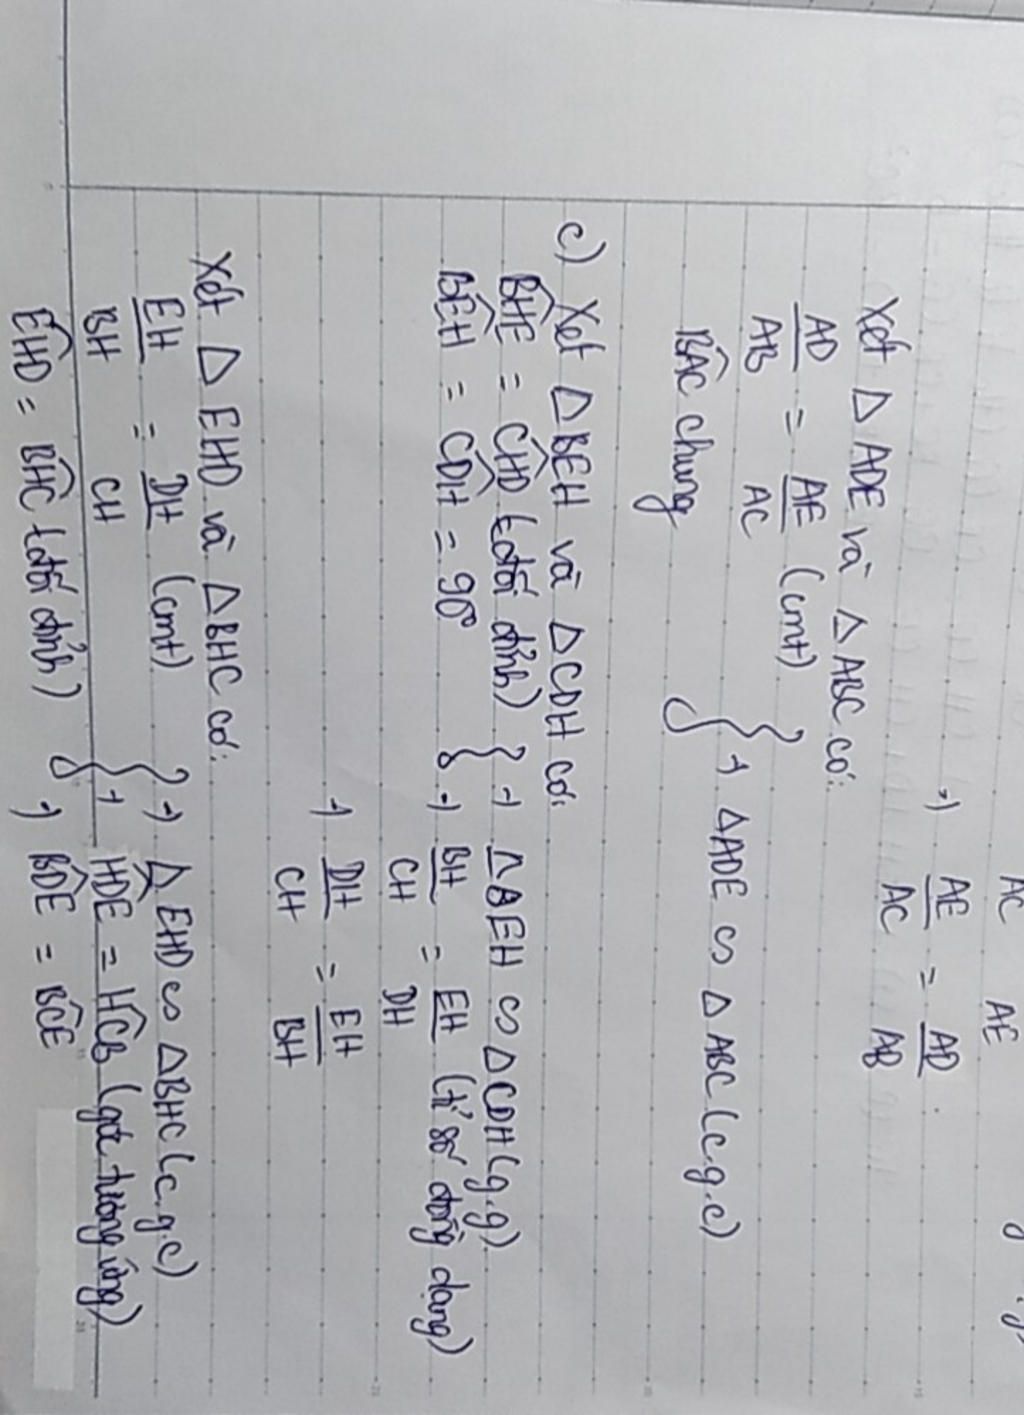 AC AE
⇒ AE/AC = AD/AB
Xét △ ADE và △ ABC có:
AD/AB = AE/AC (cmt)
B̂AC chung
} → △ADE ∽ △ABC (c.g.c)
c) Xét △BEH và △CDH có:
B̂HE = ĈHD (đối đỉnh) } → △BEH ∽ △CDH (g.g)
B̂EH = ĈDH = 90° → BH/CH = EH/DH (tỉ số đồng dạng)
→ DH/CH = EH/BH
Xét △ EHD và △BHC có:
EH/BH = DH/CH (cmt) } → △EHD ∽ △BHC (c.g.c)
→ ĤDE = ĤCB (góc tương ứng)
ÊHD = B̂HC (đối đỉnh) → B̂DE = B̂CE